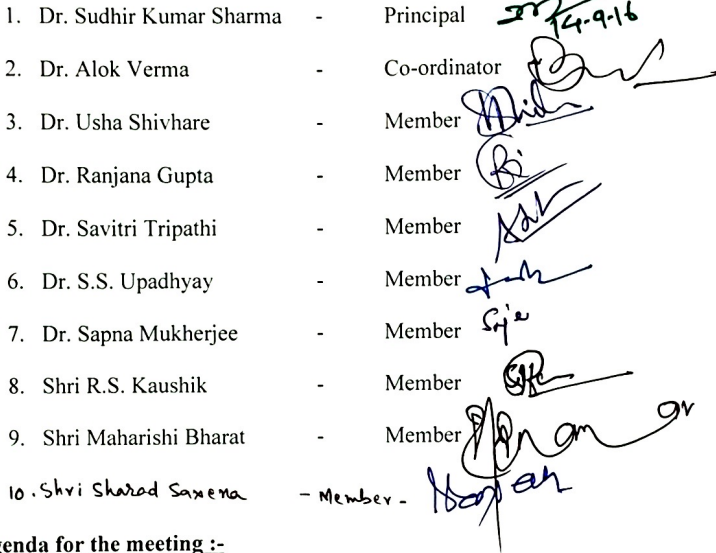 1. Dr. Sudhir Kumar Sharma - Principal 14-9-16
2. Dr. Alok Verma - Co-ordinator
3. Dr. Usha Shivhare - Member
4. Dr. Ranjana Gupta - Member
5. Dr. Savitri Tripathi - Member
6. Dr. S.S. Upadhyay - Member
7. Dr. Sapna Mukherjee - Member
8. Shri R.S. Kaushik - Member
9. Shri Maharishi Bharat - Member
10. Shri Sharad Saxena - Member -
enda for the meeting :-